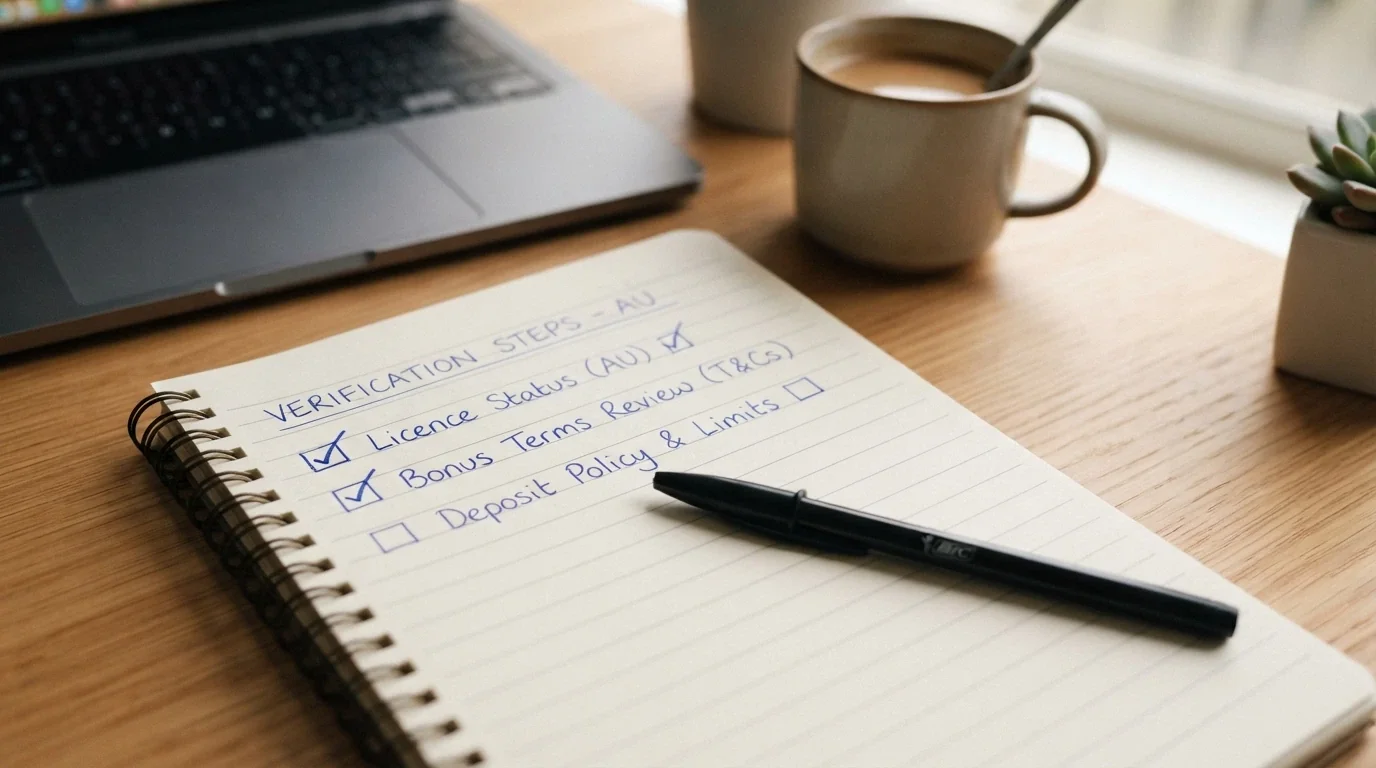 VERIFICATION STEPS - AU
☑ Licence Status (AU) ☑
☑ Bonus Terms Review (T&Cs)
☐ Deposit Policy & Limits ☐
BIC